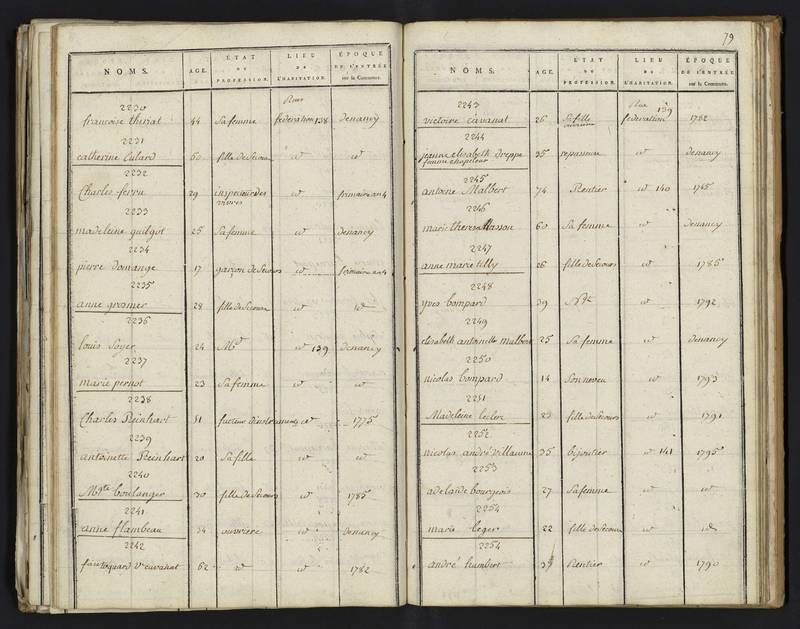 NOMS. AGE. ÉTAT OU PROFESSION. LIEU DE L'HABITATION. ÉPOQUE DE L'ENTRÉE sur la Commune.
Rue
2230
francoise thiriat 44 Sa femme federation 138 Denancy
2231
catherine Culard 60 fille de Secours id id
2232
Charles ferru 29 inspecteur des vivres id frimaire an 4
2233
madeleine guilgot 25 Sa femme id denancy
2234
pierre Domange 17 garçon de Secours id frimaire an 4
2235
anne grosmer 28 fille de Secours id id
2236
Louis Soyer 24 Md id 139 Denancy
2237
marie pernot 23 Sa femme id id
2238
Charles Reinhart 51 facteur d'instruments id 1775
2239
antoinette Reinhart 20 Sa fille id id
2240
Mgte boulanger 30 fille de Secours id 1785
2241
anne flambeau 34 ouvriere id Denancy
2242
toquard Ve cavanat 62 id id 1782
79
NOMS. AGE. ÉTAT OU PROFESSION. LIEU DE L'HABITATION. ÉPOQUE DE L'ENTRÉE sur la Commune.
Rue
2243
victoire Cavanat 26 Sa fille ouvriere federation 139 1782
2244
jeanne elisabeth Dreppe 35 repasseuse id Denancy
femme chapelour
2245
antoine Malbert 74 Rentier id 140 1765
2246
marie therese Masson 60 Sa femme id Denancy
2247
anne marie tilly 26 fille de Secours id 1785
2248
yves bompard 39 Nt id 1792
2249
elisabeth antoinette malbert 25 Sa femme id Denancy
2250
nicolas bompard 14 Son neveu id 1793
2251
Madeleine leclerc 23 fille de Secours id 1791
2252
nicolas andré Villaume 35 bijoutier id 141 1795
2253
adelaide bourgeois 27 Sa femme id id
2254
marie leger 22 fille de Secours id id
2254
andré humbert Rentier id 1790